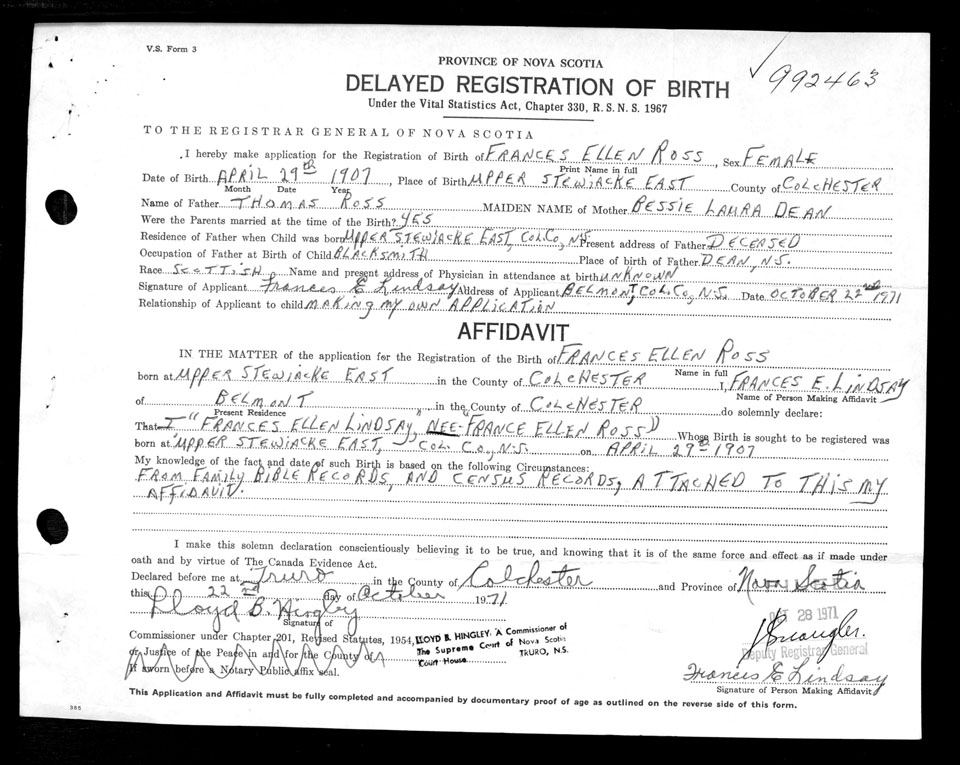 V.S. Form 3
PROVINCE OF NOVA SCOTIA
992463
DELAYED REGISTRATION OF BIRTH
Under the Vital Statistics Act, Chapter 330, R.S.N.S. 1967
TO THE REGISTRAR GENERAL OF NOVA SCOTIA
I hereby make application for the Registration of Birth of FRANCES ELLEN ROSS, Sex FEMALE
Print Name in full
Date of Birth APRIL 29th 1907, Place of Birth UPPER STEWIACKE EAST County of COLCHESTER
Month Date Year
Name of Father THOMAS ROSS MAIDEN NAME of Mother BESSIE LAURA DEAN
Were the Parents married at the time of the Birth? YES
Residence of Father when Child was born UPPER STEWIACKE EAST, COL.CO, N.S. Present address of Father DECEASED
Occupation of Father at Birth of Child BLACKSMITH Place of birth of Father DEAN, N.S.
Race SCOTTISH Name and present address of Physician in attendance at birth UNKNOWN
Signature of Applicant Frances E Lindsay Address of Applicant BELMONT, COL.CO., N.S. Date OCTOBER 22nd 1971
Relationship of Applicant to child MAKING MY OWN APPLICATION
AFFIDAVIT
IN THE MATTER of the application for the Registration of the Birth of FRANCES ELLEN ROSS
Name in full
born at UPPER STEWIACKE EAST in the County of COLCHESTER I, FRANCES E. LINDSAY
Name of Person Making Affidavit
of BELMONT in the County of COLCHESTER do solemnly declare:
Present Residence
That I "FRANCES ELLEN LINDSAY, NEE "FRANCE ELLEN ROSS") Whose Birth is sought to be registered was
born at UPPER STEWIACKE EAST, COL. CO., N.S. on APRIL 29th 1907
My knowledge of the fact and date of such Birth is based on the following Circumstances:
FROM FAMILY BIBLE RECORDS, AND CENSUS RECORDS, ATTACHED TO THIS MY
AFFIDAVIT.
I make this solemn declaration conscientiously believing it to be true, and knowing that it is of the same force and effect as if made under
oath and by virtue of The Canada Evidence Act.
Declared before me at Truro in the County of Colchester and Province of Nova Scotia
this 22nd day of October 1971
OCT 28 1971
Lloyd B. Hingley
Signature of
Commissioner under Chapter 201, Revised Statutes, 1954,
or Justice of the Peace in and for the County of
If sworn before a Notary Public affix seal.
LLOYD B. HINGLEY. A Commissioner of
The Supreme Court of Nova Scotia
Court House TRURO, N.S.
Deputy Registrar General
Frances E Lindsay
Signature of Person Making Affidavit
This Application and Affidavit must be fully completed and accompanied by documentary proof of age as outlined on the reverse side of this form.